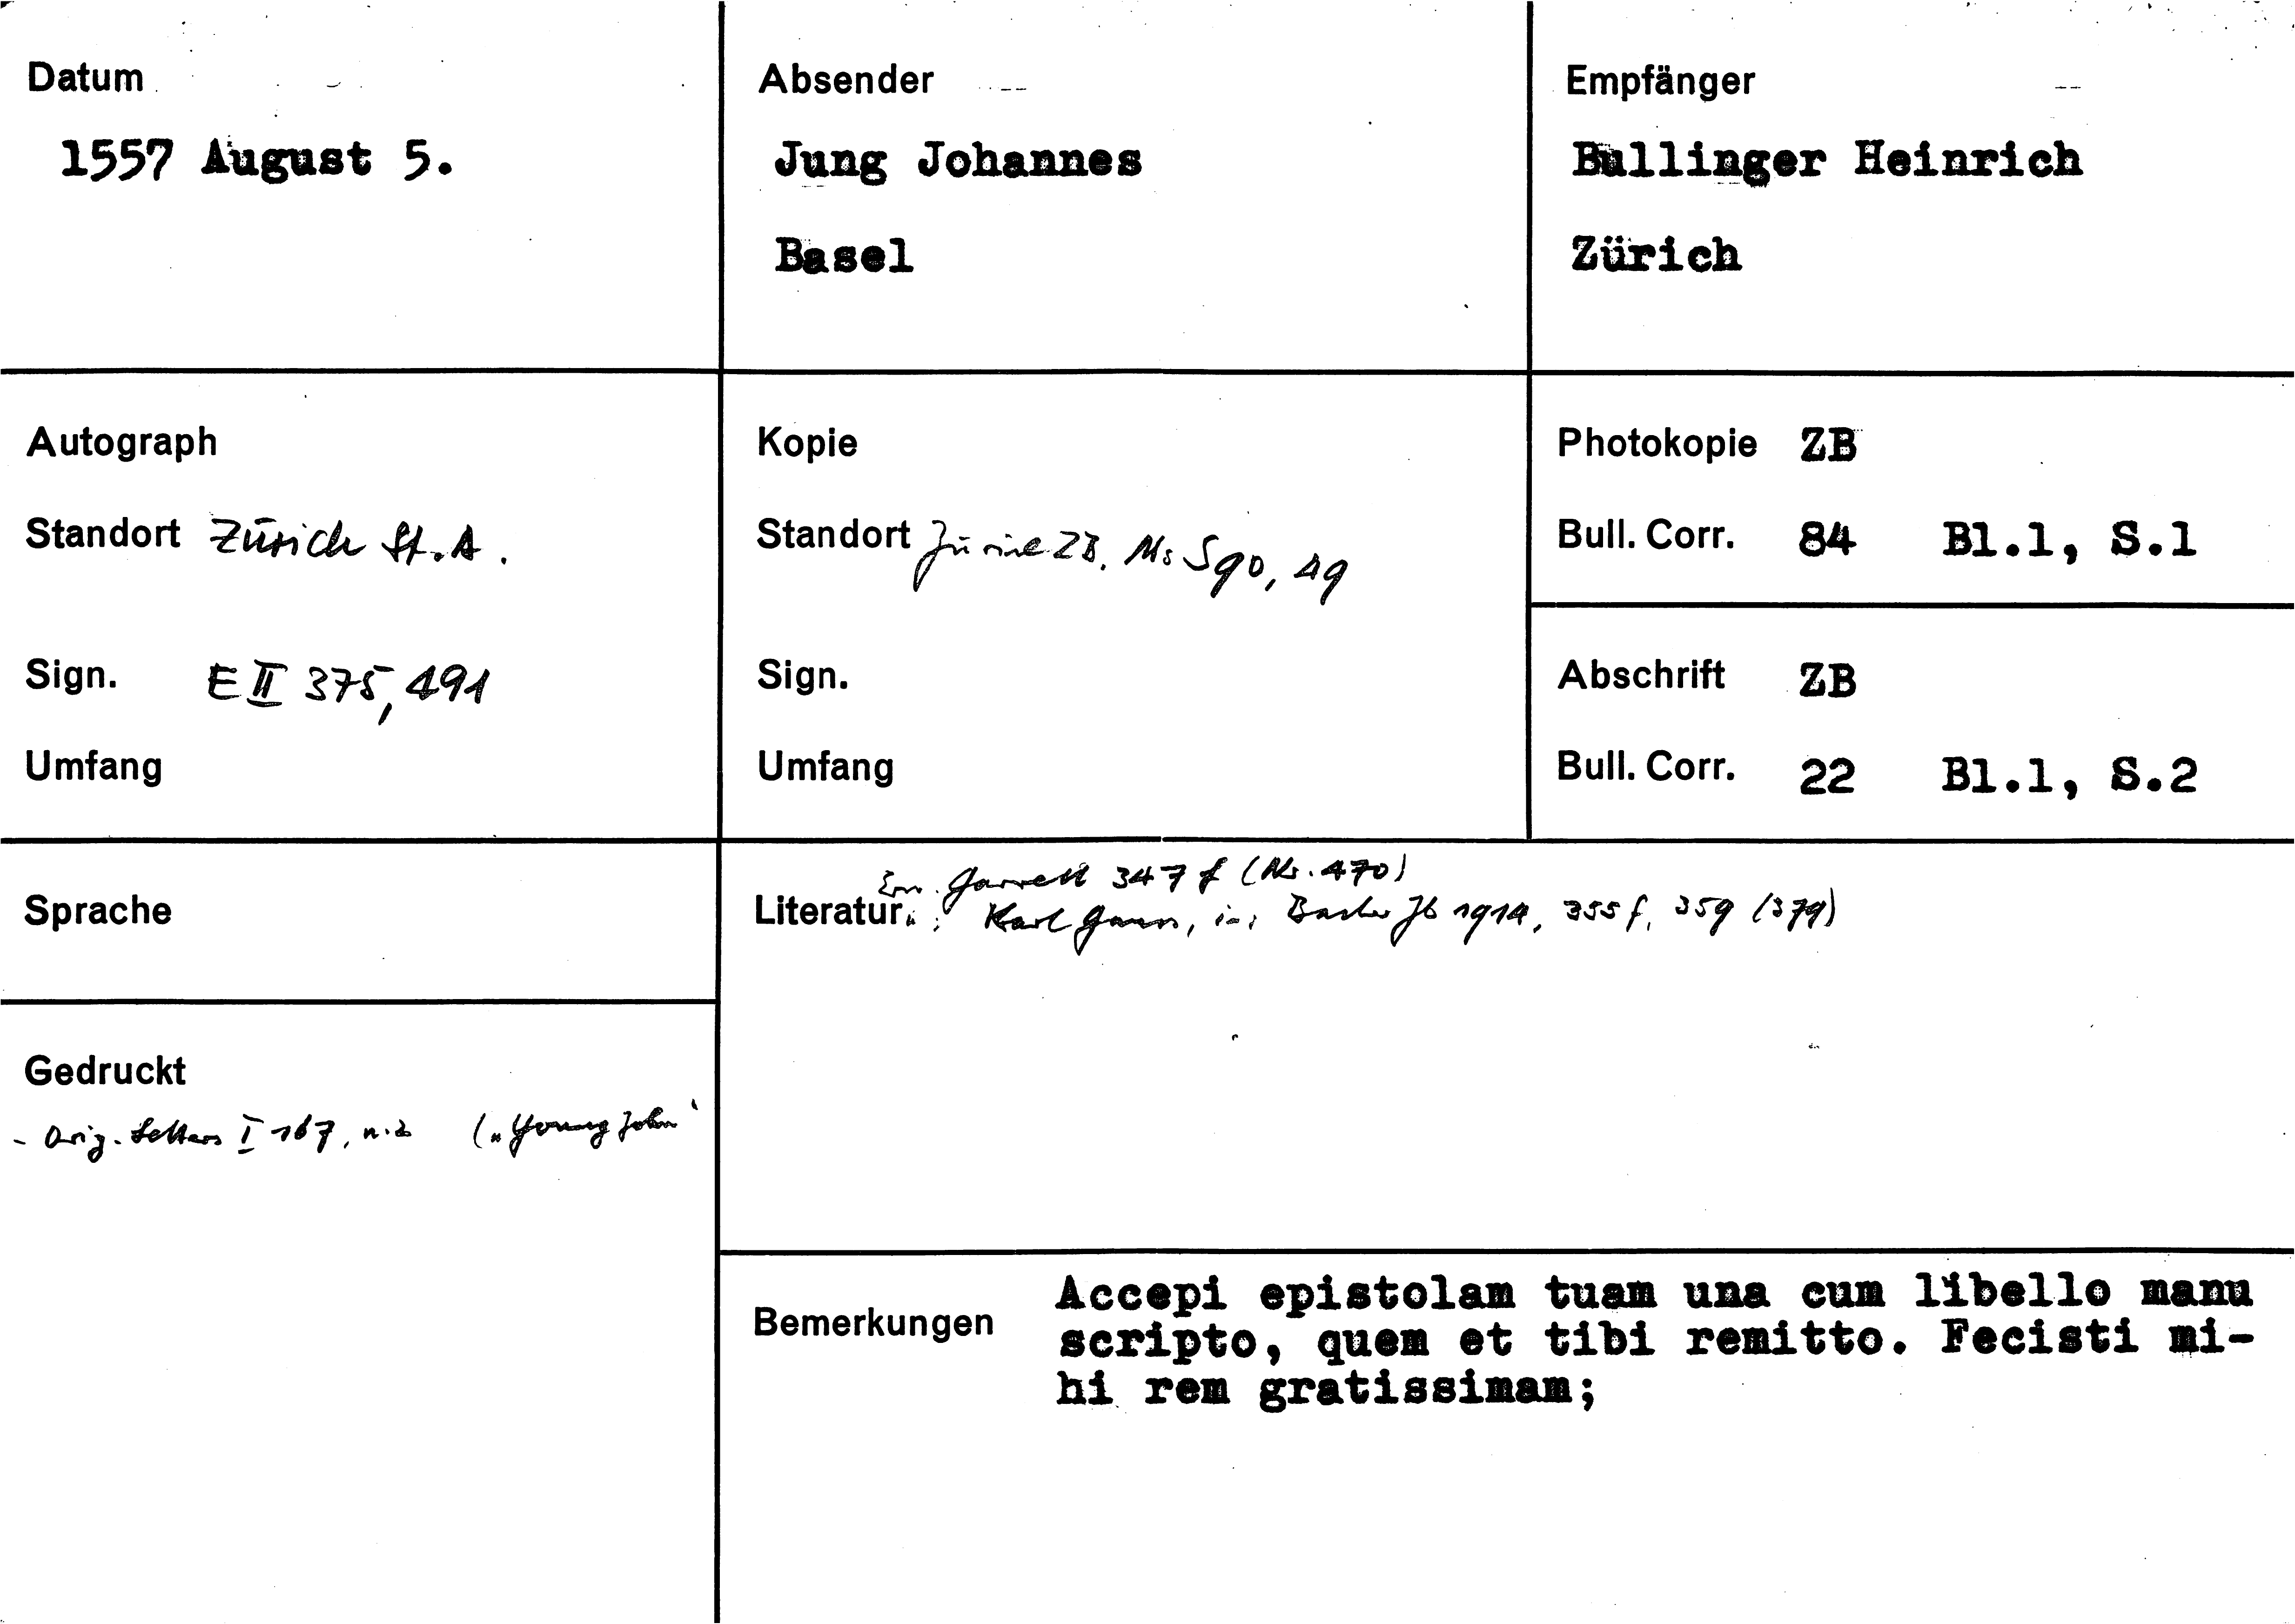 Datum
1557 August 5.
Absender
Jung Johannes
Basel
Empfänger
Bullinger Heinrich
Zürich
Autograph
Standort Zürich St.A.
Sign. E II 375, 491
Umfang
Kopie
Standort Zürich ZB, Ms S 90, 49
Sign.
Umfang
Photokopie ZB
Bull. Corr. 84 Bl.1, S.1
Abschrift ZB
Bull. Corr. 22 Bl.1, S.2
Sprache
Gedruckt
- Orig. Letters I 167, n. 2 („Young John“
Garrett 347 f (Nr. 470)
Literatur: Karl Gauss, in: Basler Jb 1914, 355 f, 359 (379)
Bemerkungen
Accepi epistolam tuam una cum libello manu
scripto, quem et tibi remitto. Fecisti mi-
hi rem gratissimam;